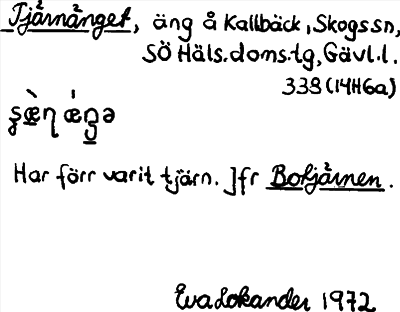 Tjärnänget, äng å Kallbäck, Skogs sn,
SÖ Häls. doms.tg, Gävl.l.
338 (14H6a)
Har förr varit tjärn. Jfr Botjärnen.
Eva Lokander 1972